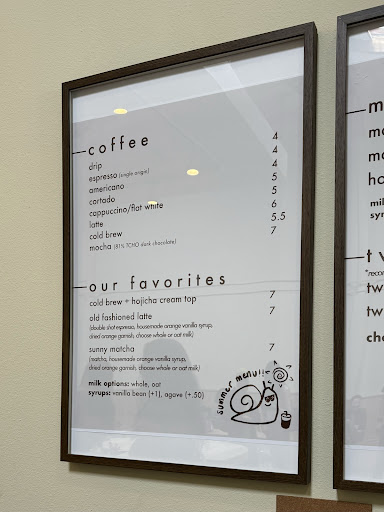 coffee
drip 4
espresso (single origin) 4
americano 4
cortado 5
cappuccino/flat white 5
latte 6
cold brew 5.5
mocha (81% TCHO dark chocolate) 7
our favorites
cold brew + hojicha cream top 7
old fashioned latte 7
(double shot espresso, housemade orange vanilla syrup,
dried orange garnish, choose whole or oat milk)
sunny matcha 7
(matcha, housemade orange vanilla syrup,
dried orange garnish, choose whole or oat milk)
milk options: whole, oat
syrups: vanilla bean (+1), agave (+.50)
summer menu!!
m
ma
ma
ho
mil
syr
tw
*recon
tw
tw
cho